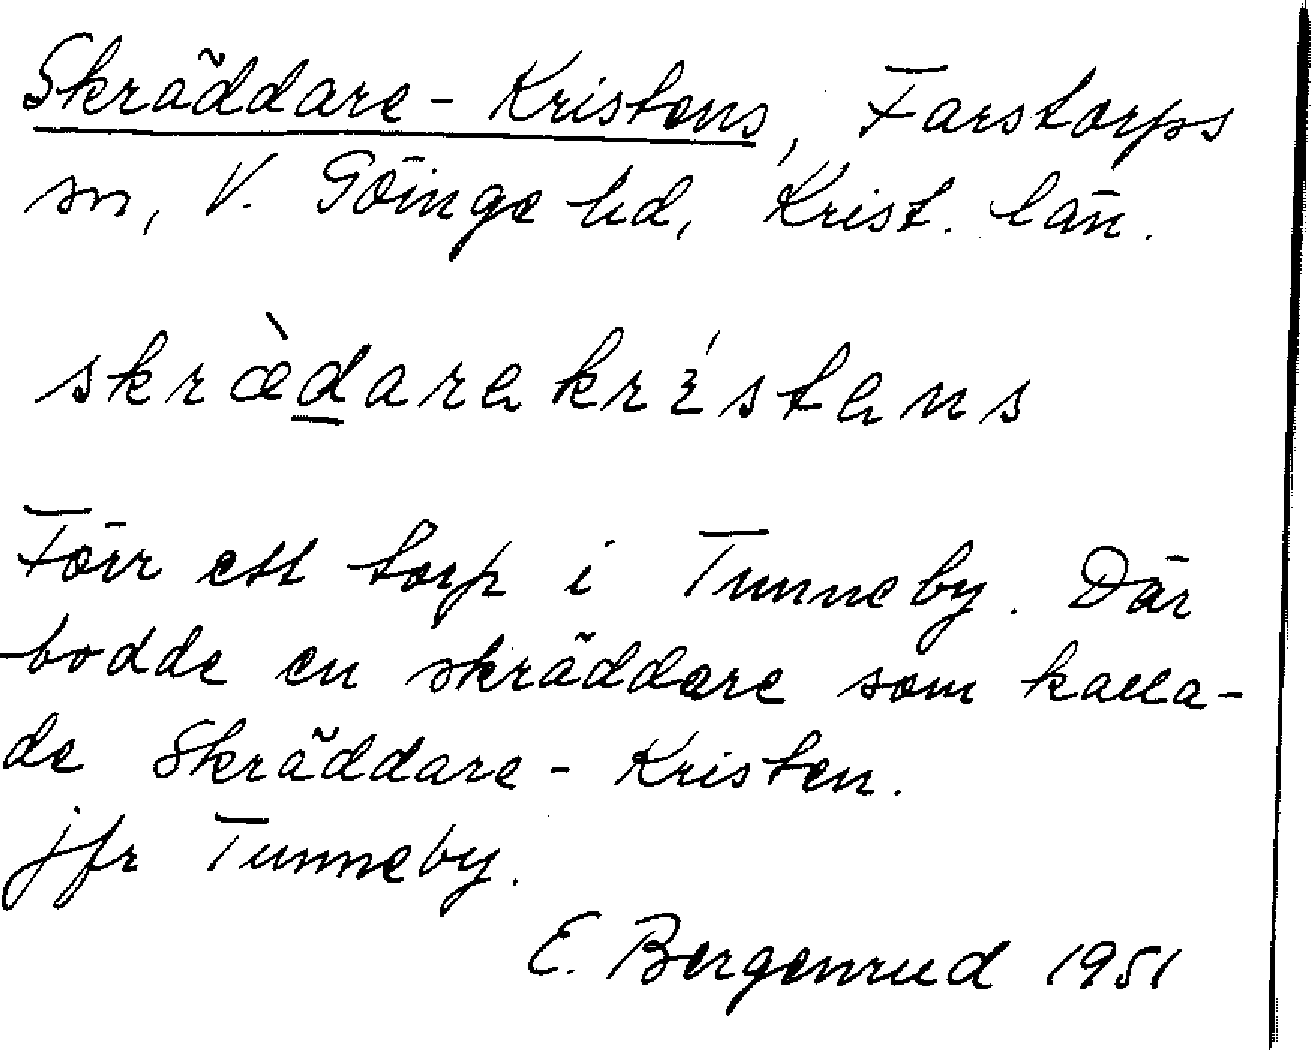 Skräddare-Kristens, Farstorps
sn, V. Göinge hd, Krist. län.
skræ̀darekrɛ́stens
Förr ett torp i Tunneby. Där
bodde en skräddare som kalla-
de Skräddare-Kristen.
jfr Tunneby.
E. Bergenrud 1951